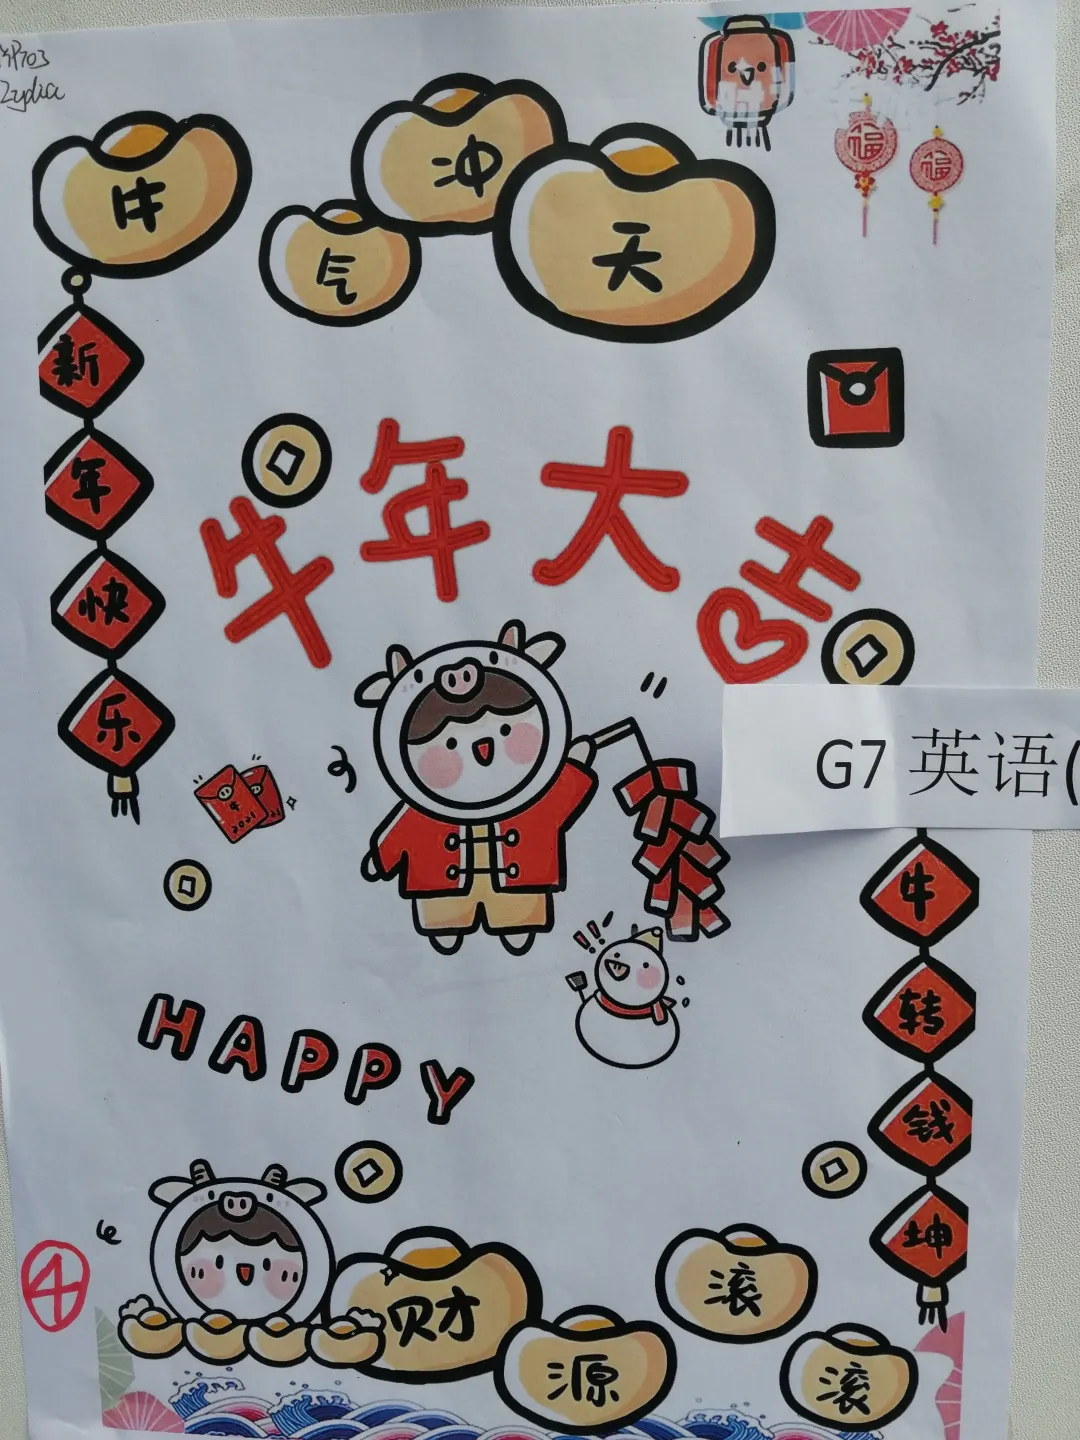 Lydia
牛气冲天
福
福
新年快乐
牛年大吉
G7 英语(
牛
2021
牛转钱坤
HAPPY
4
财源滚滚